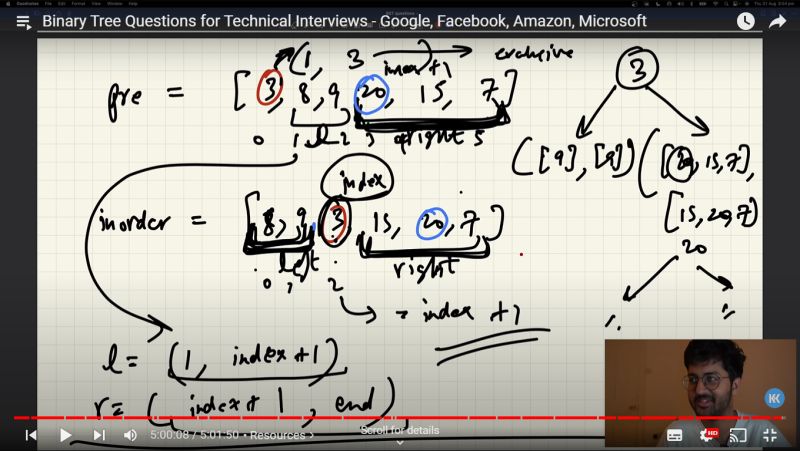 Binary Tree Questions for Technical Interviews - Google, Facebook, Amazon, Microsoft
(1, 3) exclusive
index+1
pre = [3, 8, 9, 20, 15, 7]
0 1 l 2 3 right 5
3
([9], [9]) ([20, 15, 7],
[15, 20, 7])
index
inorder = [8, 9, 3, 15, 20, 7]
left right
0 1 2
20
= index +1
l = (1, index+1)
r = (index+1, end)
KK
HD
5:00:08 / 5:01:50 • Resources >
Scroll for details